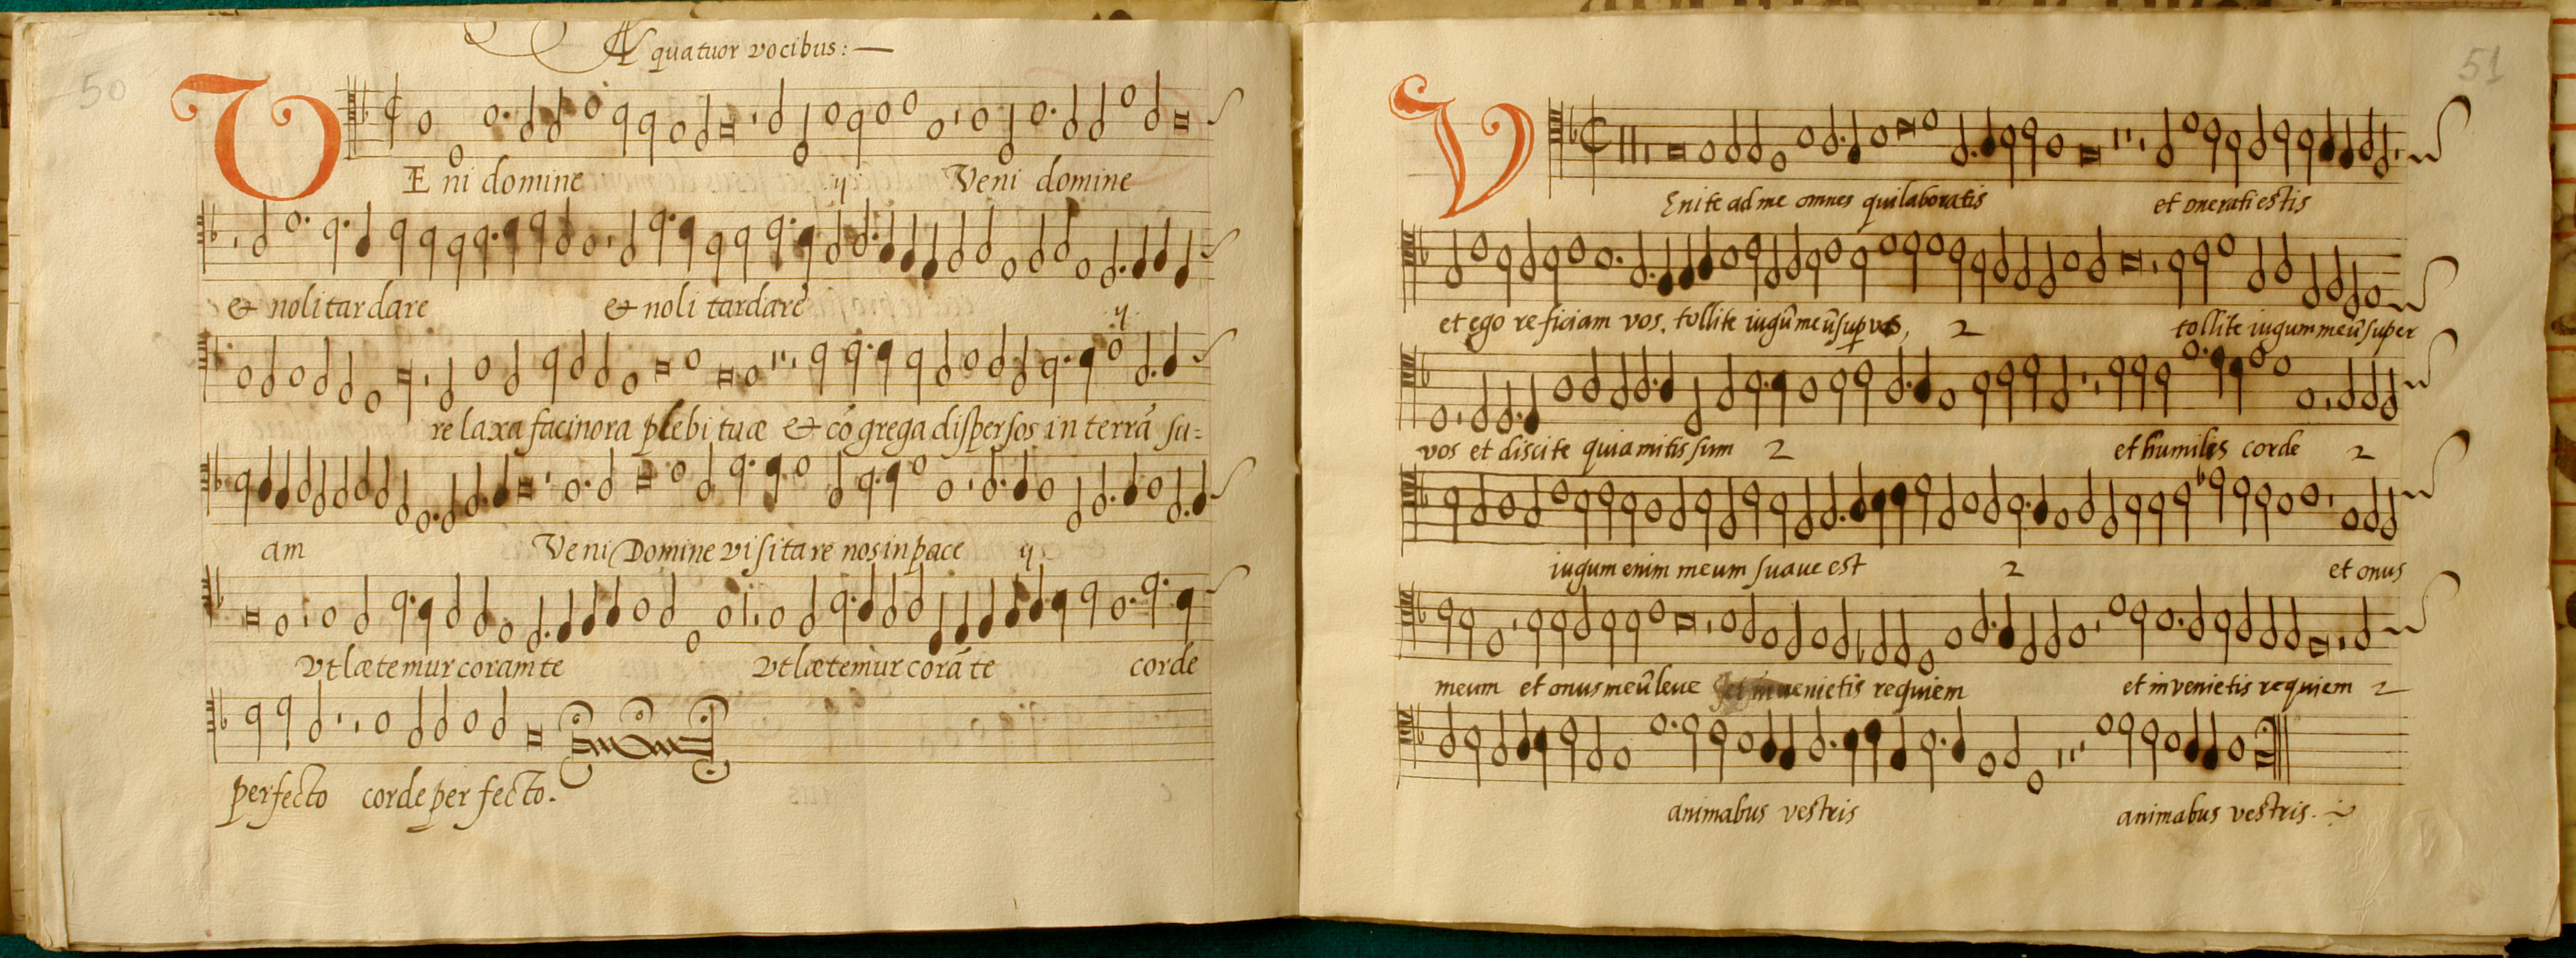 50
A quatuor vocibus:
VEni domine ij Veni domine
& noli tardare & noli tardare ij
relaxa facinora plebi tuæ & cō grega dispersos in terrā su=
am Veni Domine visitare nos in pace ij
Vt lætemur coram te Vt lætemur corā te corde
perfecto corde perfecto.
51
VEnite ad me omnes qui laboratis et onerati estis
et ego reficiam vos, tollite iugū meū sup vos, 2 tollite iugum meū super
vos et discite quia mitis sum 2 et humilis corde 2
iugum enim meum suave est 2 et onus
meum et onus meū leve et invenietis requiem et invenietis requiem 2
animabus vestris animabus vestris.